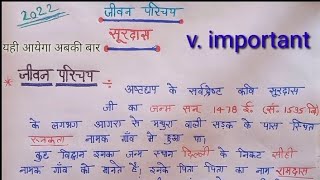 2022
जीवन परिचय
सूरदास
यही आयेगा अबकी बार
v. important
* जीवन परिचय ÷
अष्टछाप के सर्वश्रेष्ठ कवि सूरदास
जी का जन्म सन् 1478 ई. (सं.-1535 वि.)
के लगभग आगरा से मथुरा वाली सड़क के पास स्थित
रुनकता नामक गाँव में हुआ था।
कुछ विद्वान इनका जन्म स्थान दिल्ली के निकट सीही
नामक गाँव को मानते हैं। इनके पिता का नाम रामदास